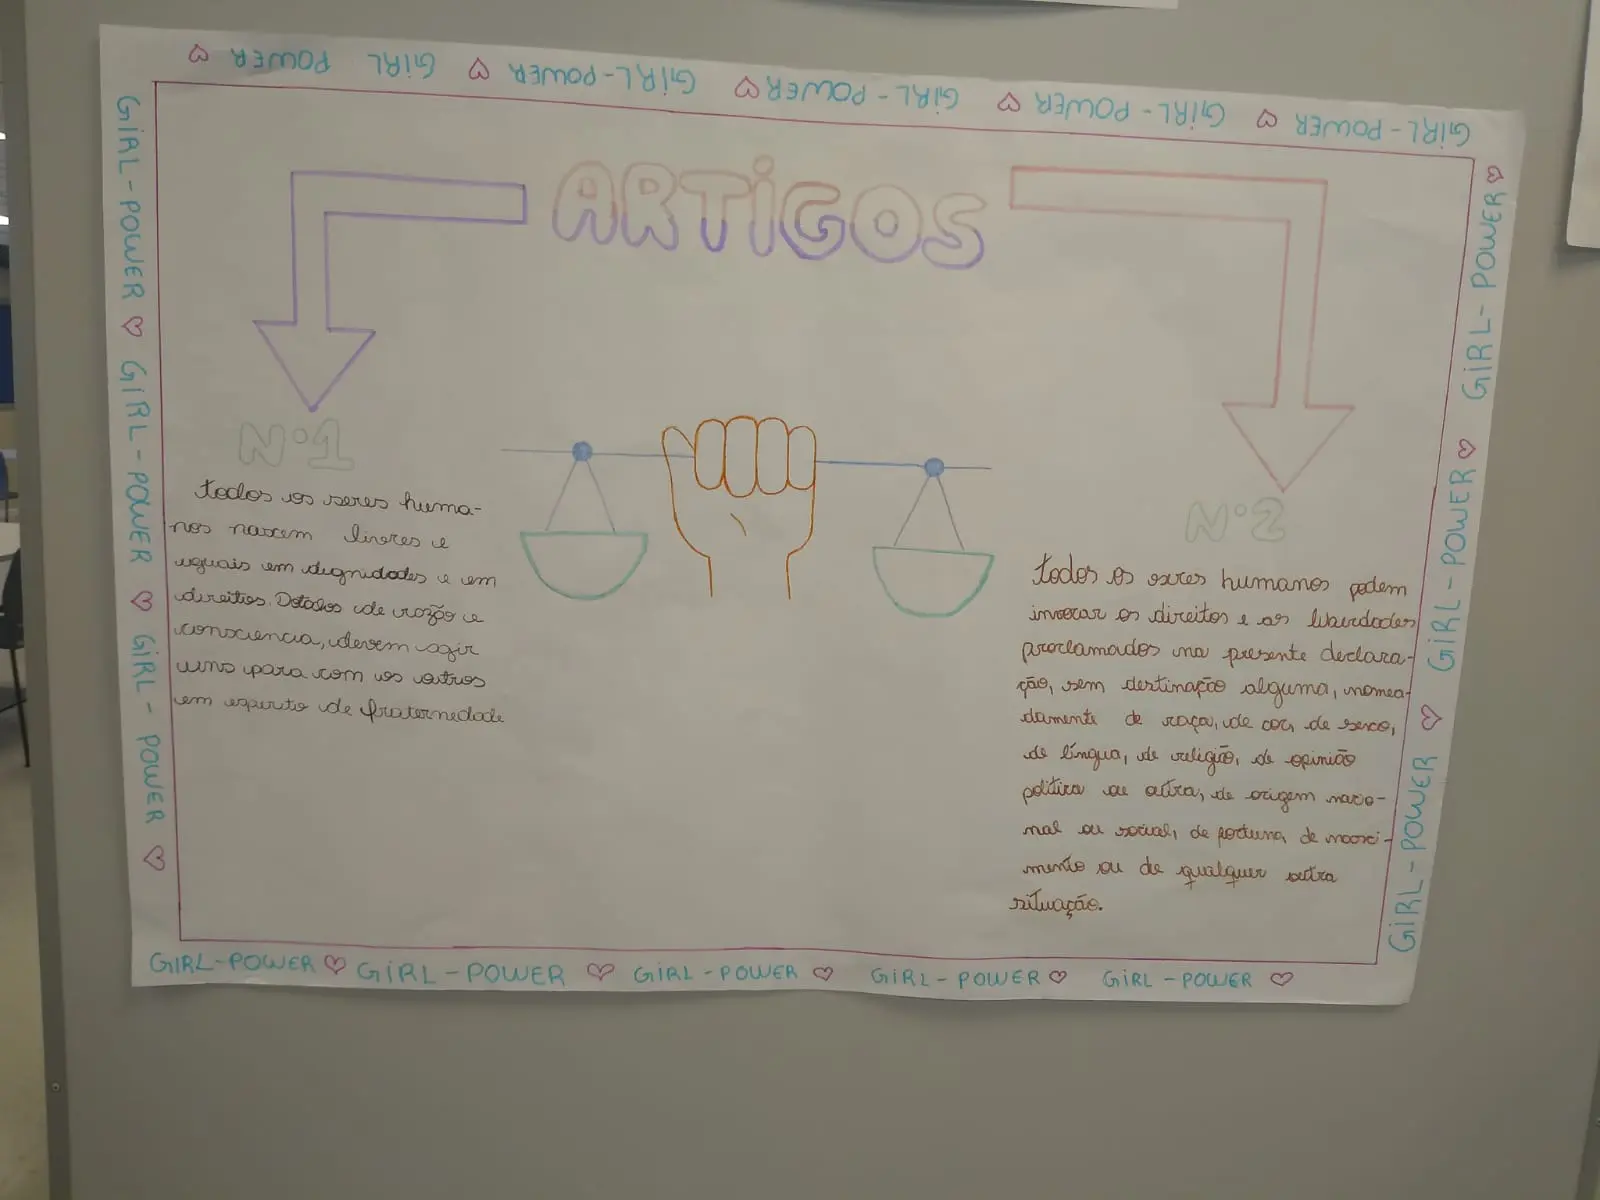 GIRL-POWER GIRL-POWER GIRL-POWER GIRL-POWER GIRL POWER
GIRL-POWER GIRL-POWER GIRL-POWER
ARTIGOS
Nº1
todos os seres huma-
nos nascem livres e
iguais em dignidades e em
direitos. Dotados de razão e
consciencia, devem agir
uns para com os outros
em espirito de fraternedade
Nº2
todos os seres humanos podem
invocar os direitos e as
proclamados na presente declara-
ção, sem destinação alguma, nomea-
damente de raça, de cor, de sexo,
de língua, de religião, de opinião
politica ou outra, de origem nacio-
nal ou social, de fortuna, de nasci-
mento ou de qualquer outra
situação.
GIRL-POWER GIRL-POWER GIRL-POWER
GIRL-POWER GIRL-POWER GIRL-POWER GIRL-POWER GIRL-POWER